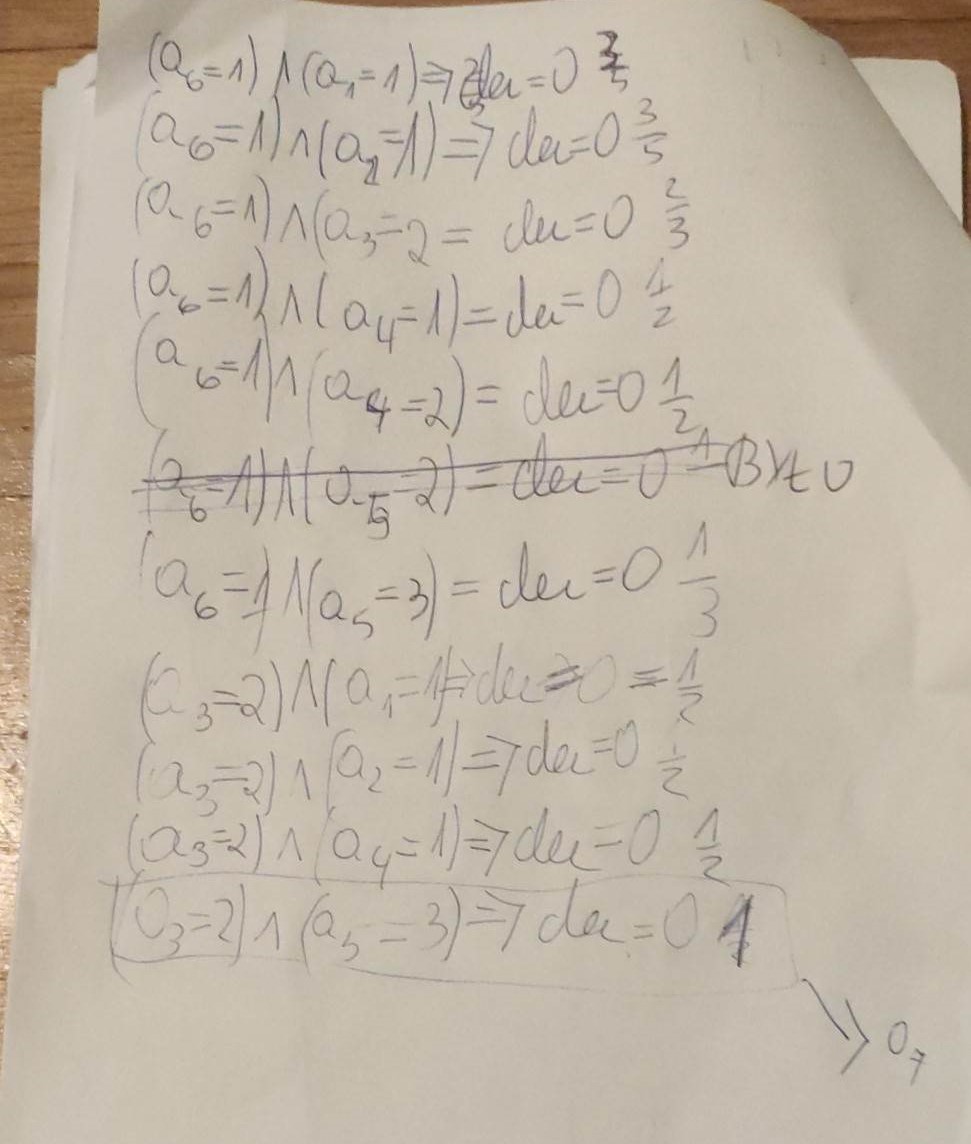 (a₆=1) ∧ (a₁=1) ⇒ dec=0 3/5
(a₆=1) ∧ (a₂=1) ⇒ dec=0 3/5
(a₆=1) ∧ (a₃=2 = dec=0 2/3
(a₆=1) ∧ (a₄=1) = dec=0 1/2
(a₆=1) ∧ (a₄=2) = dec=0 1/2
(a₆=1) ∧ (a₅=2) = dec=0
(a₆=1) ∧ (a₅=3) = dec=0 1/3
(a₃=2) ∧ (a₁=1) ⇒ dec=0 = 1/2
(a₃=2) ∧ (a₂=1) ⇒ dec=0 1/2
(a₃=2) ∧ (a₄=1) ⇒ dec=0 1/2
(a₃=2) ∧ (a₅=3) ⇒ dec=0 1
O₇